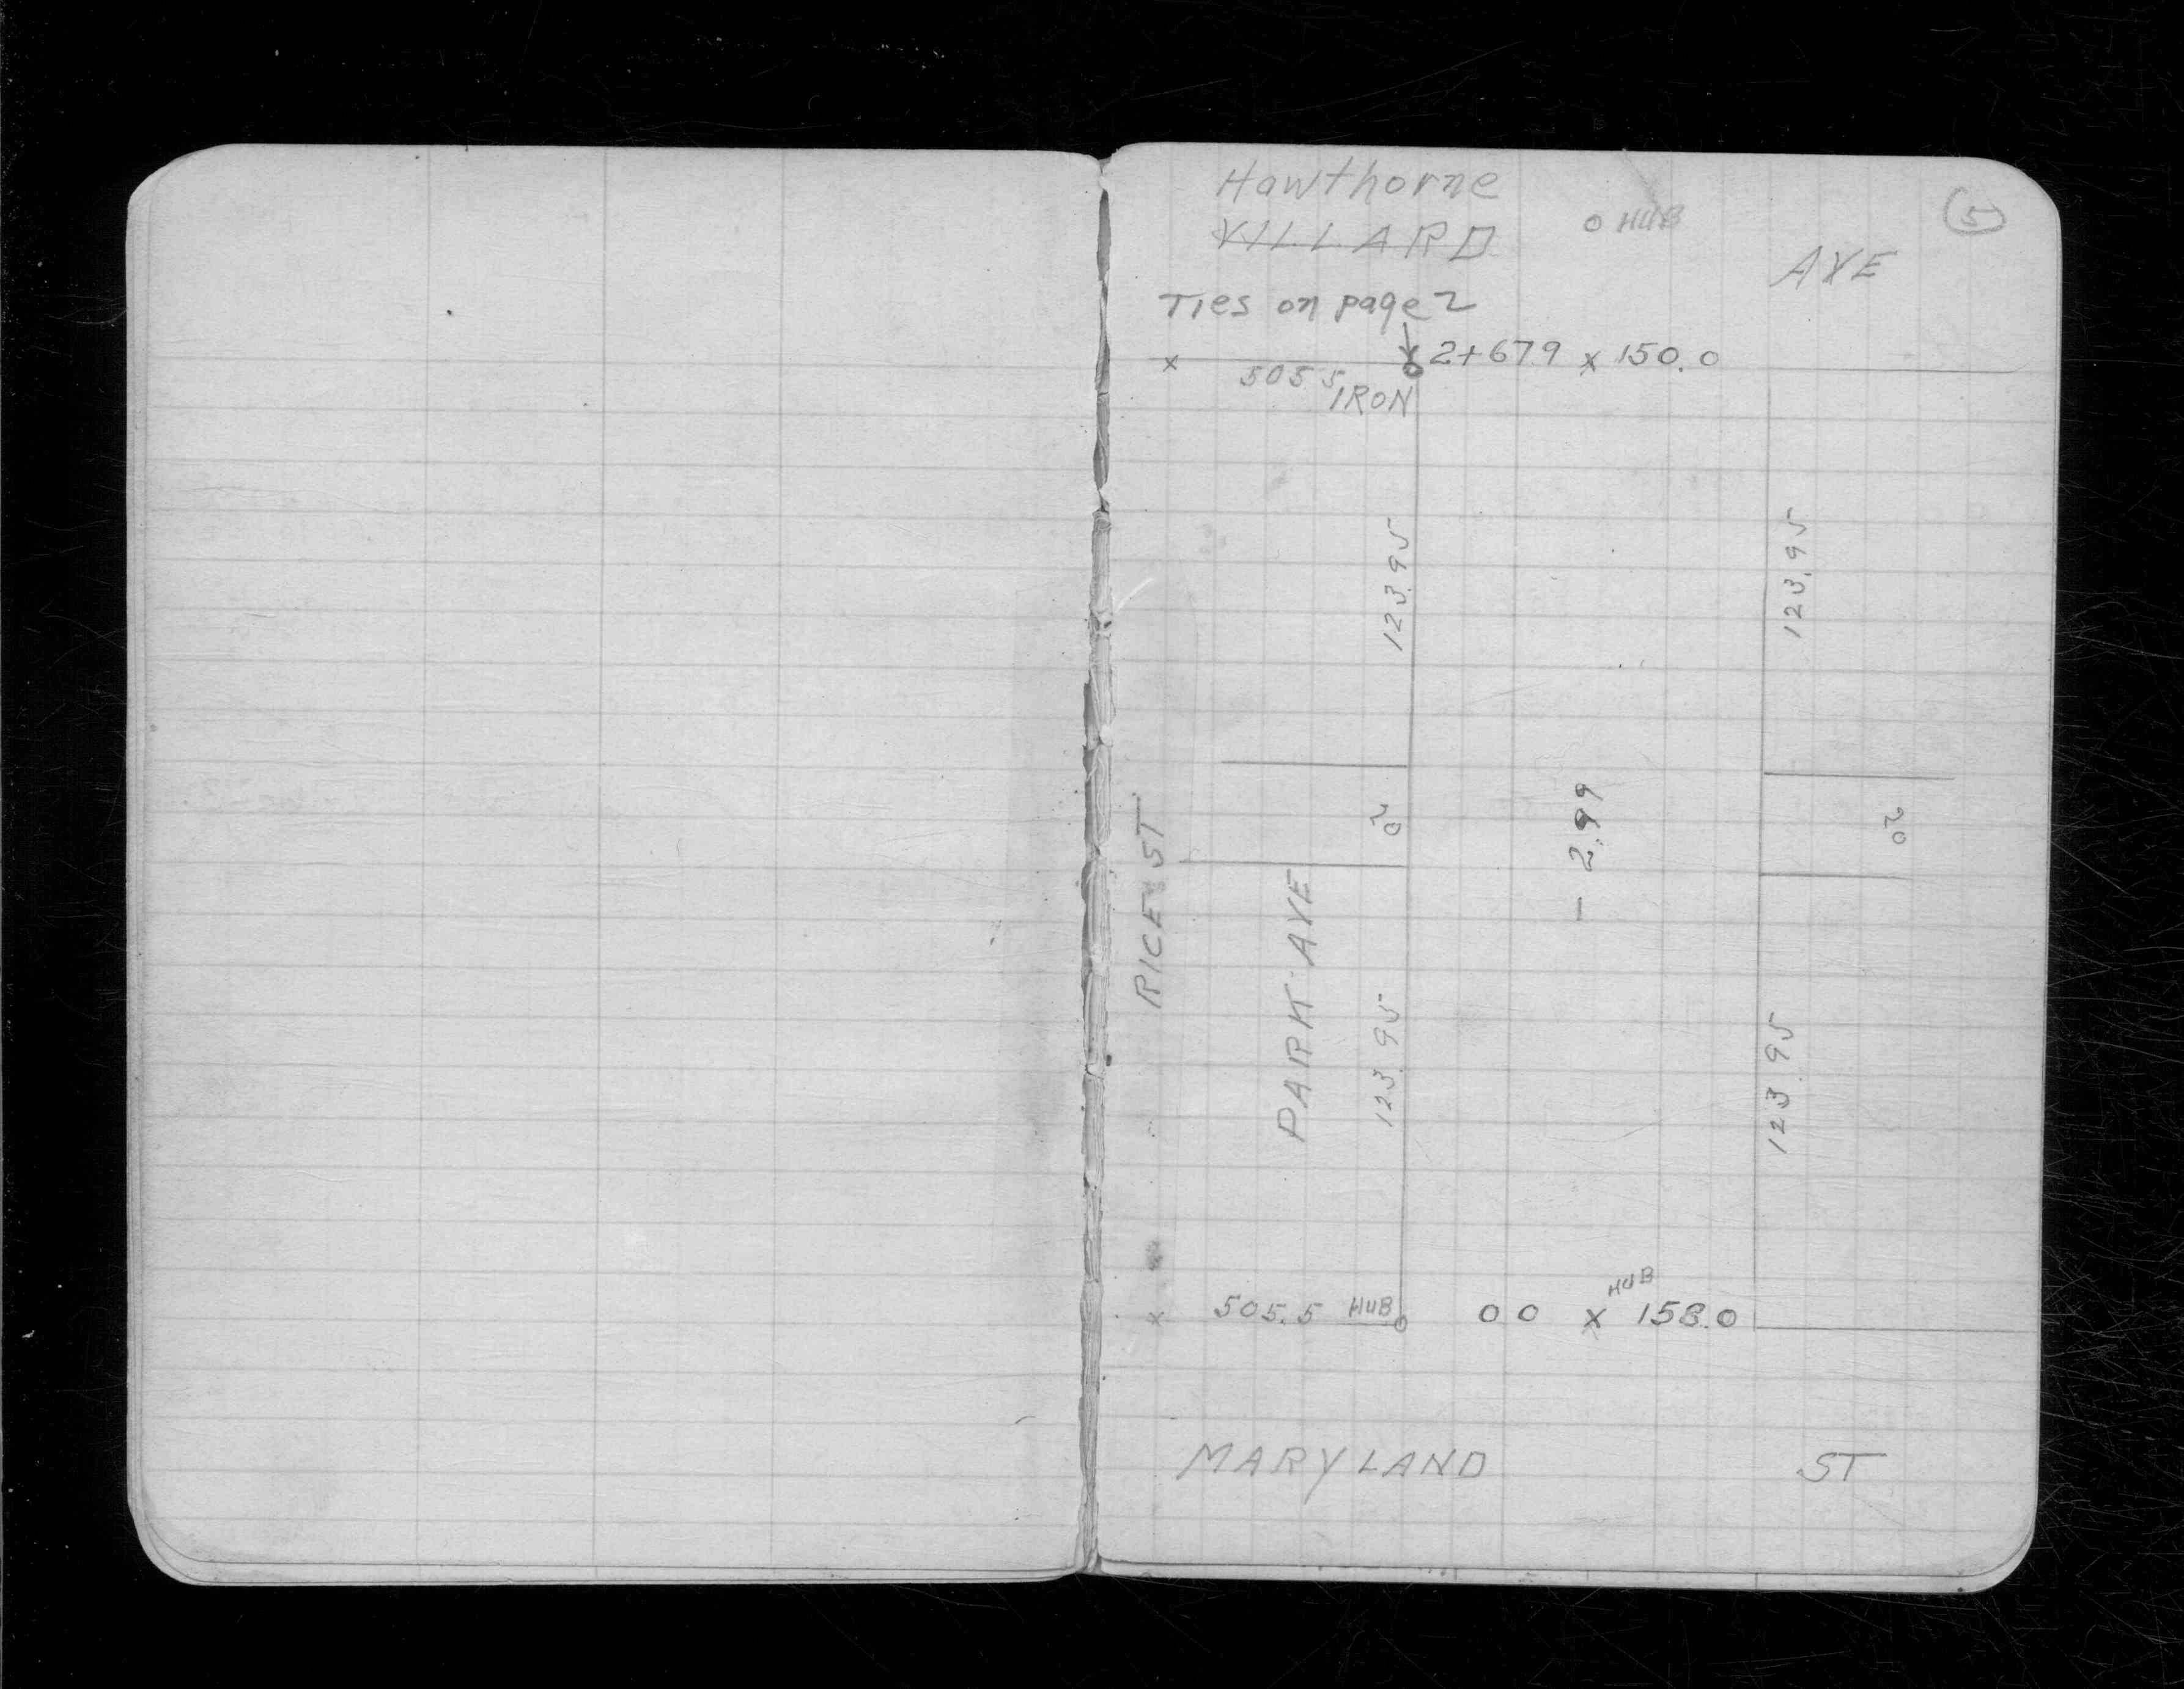 Hawthorne
VILLARD
O HUB
5
AVE
Ties on page 2
x 2+67.9 x 150.0
505.5
IRON
123.95
123.95
20
20
- 2.99
RICE ST
PARK AVE
123.95
123.95
HUB
x 505.5 HUB 00 x 158.0
MARYLAND ST